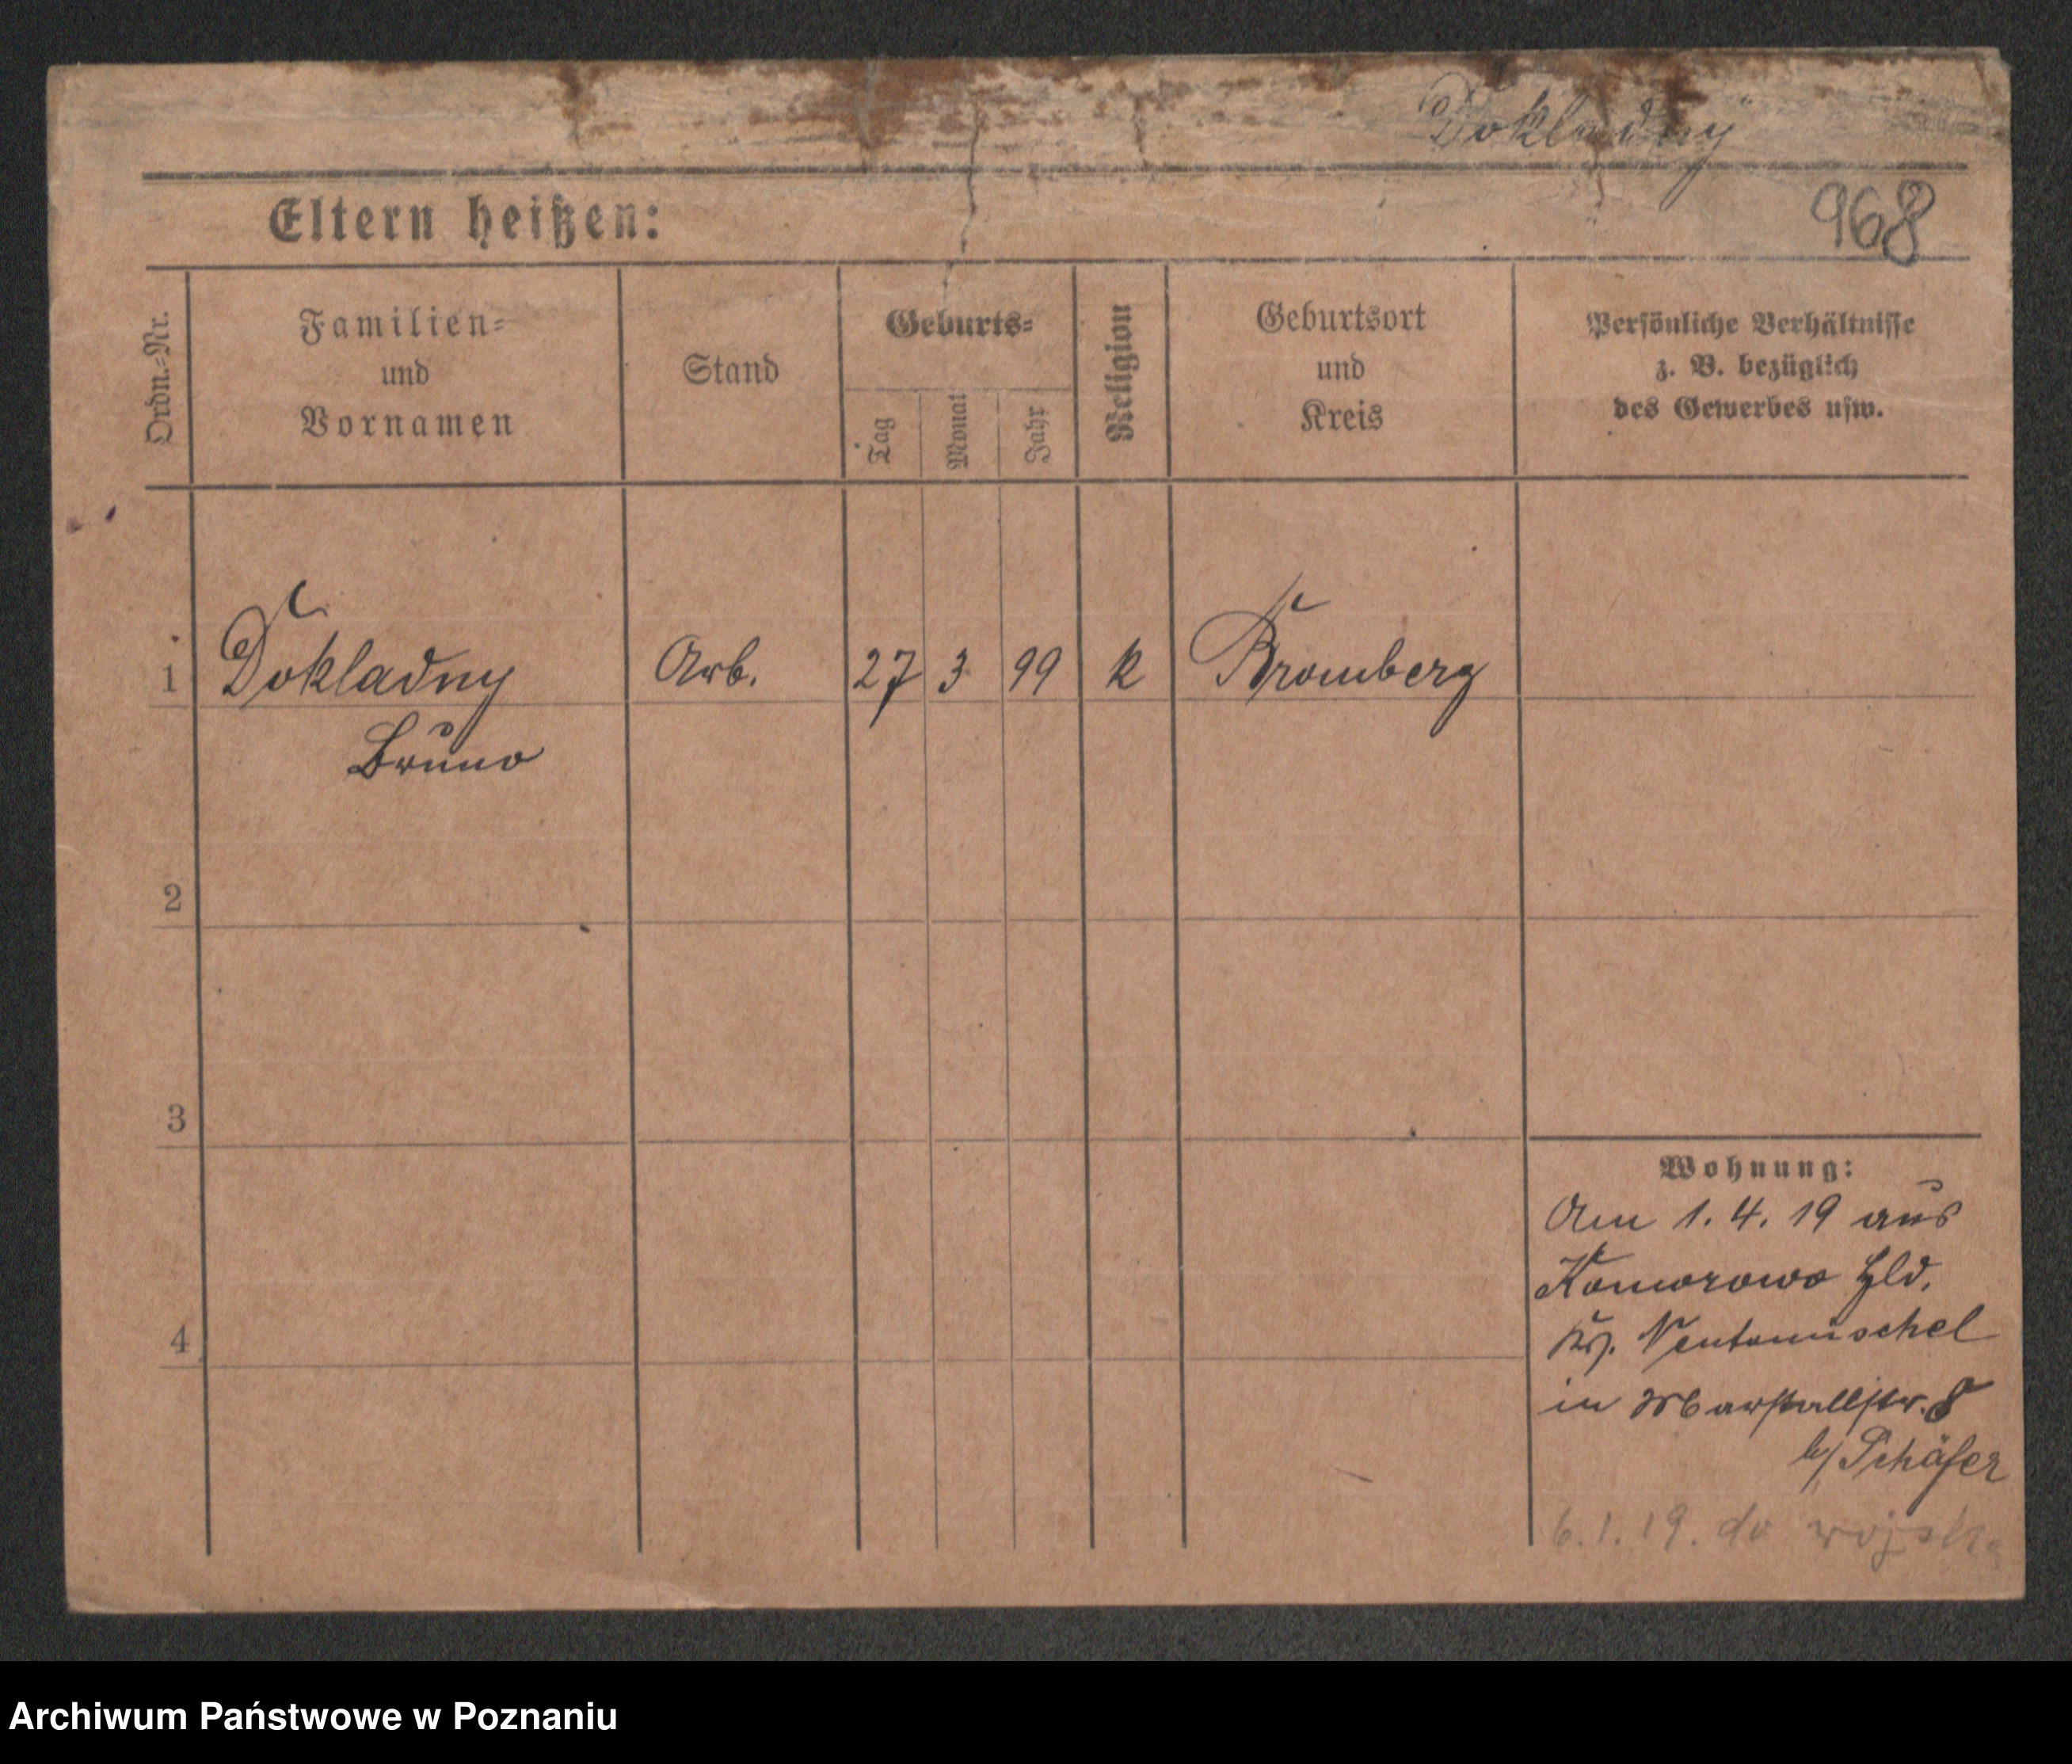 Dokladny
968
Eltern heißen:
Ordn.=Nr.
Familien=
und
Vornamen
Stand
Geburts=
Tag
Monat
Jahr
Religion
Geburtsort
und
Kreis
Persönliche Verhältnisse
z. B. bezüglich
des Gewerbes usw.
1 Dokladny Arb. 27 3 99 k Bromberg
Bruno
2
3
4
Wohnung:
Am 1. 4. 19 aus
Komorowo Hld.
Krs. Neutomischel
in Marstallstr. 8
b/ Schäfer
6.1.19. do wojska
Archiwum Państwowe w Poznaniu